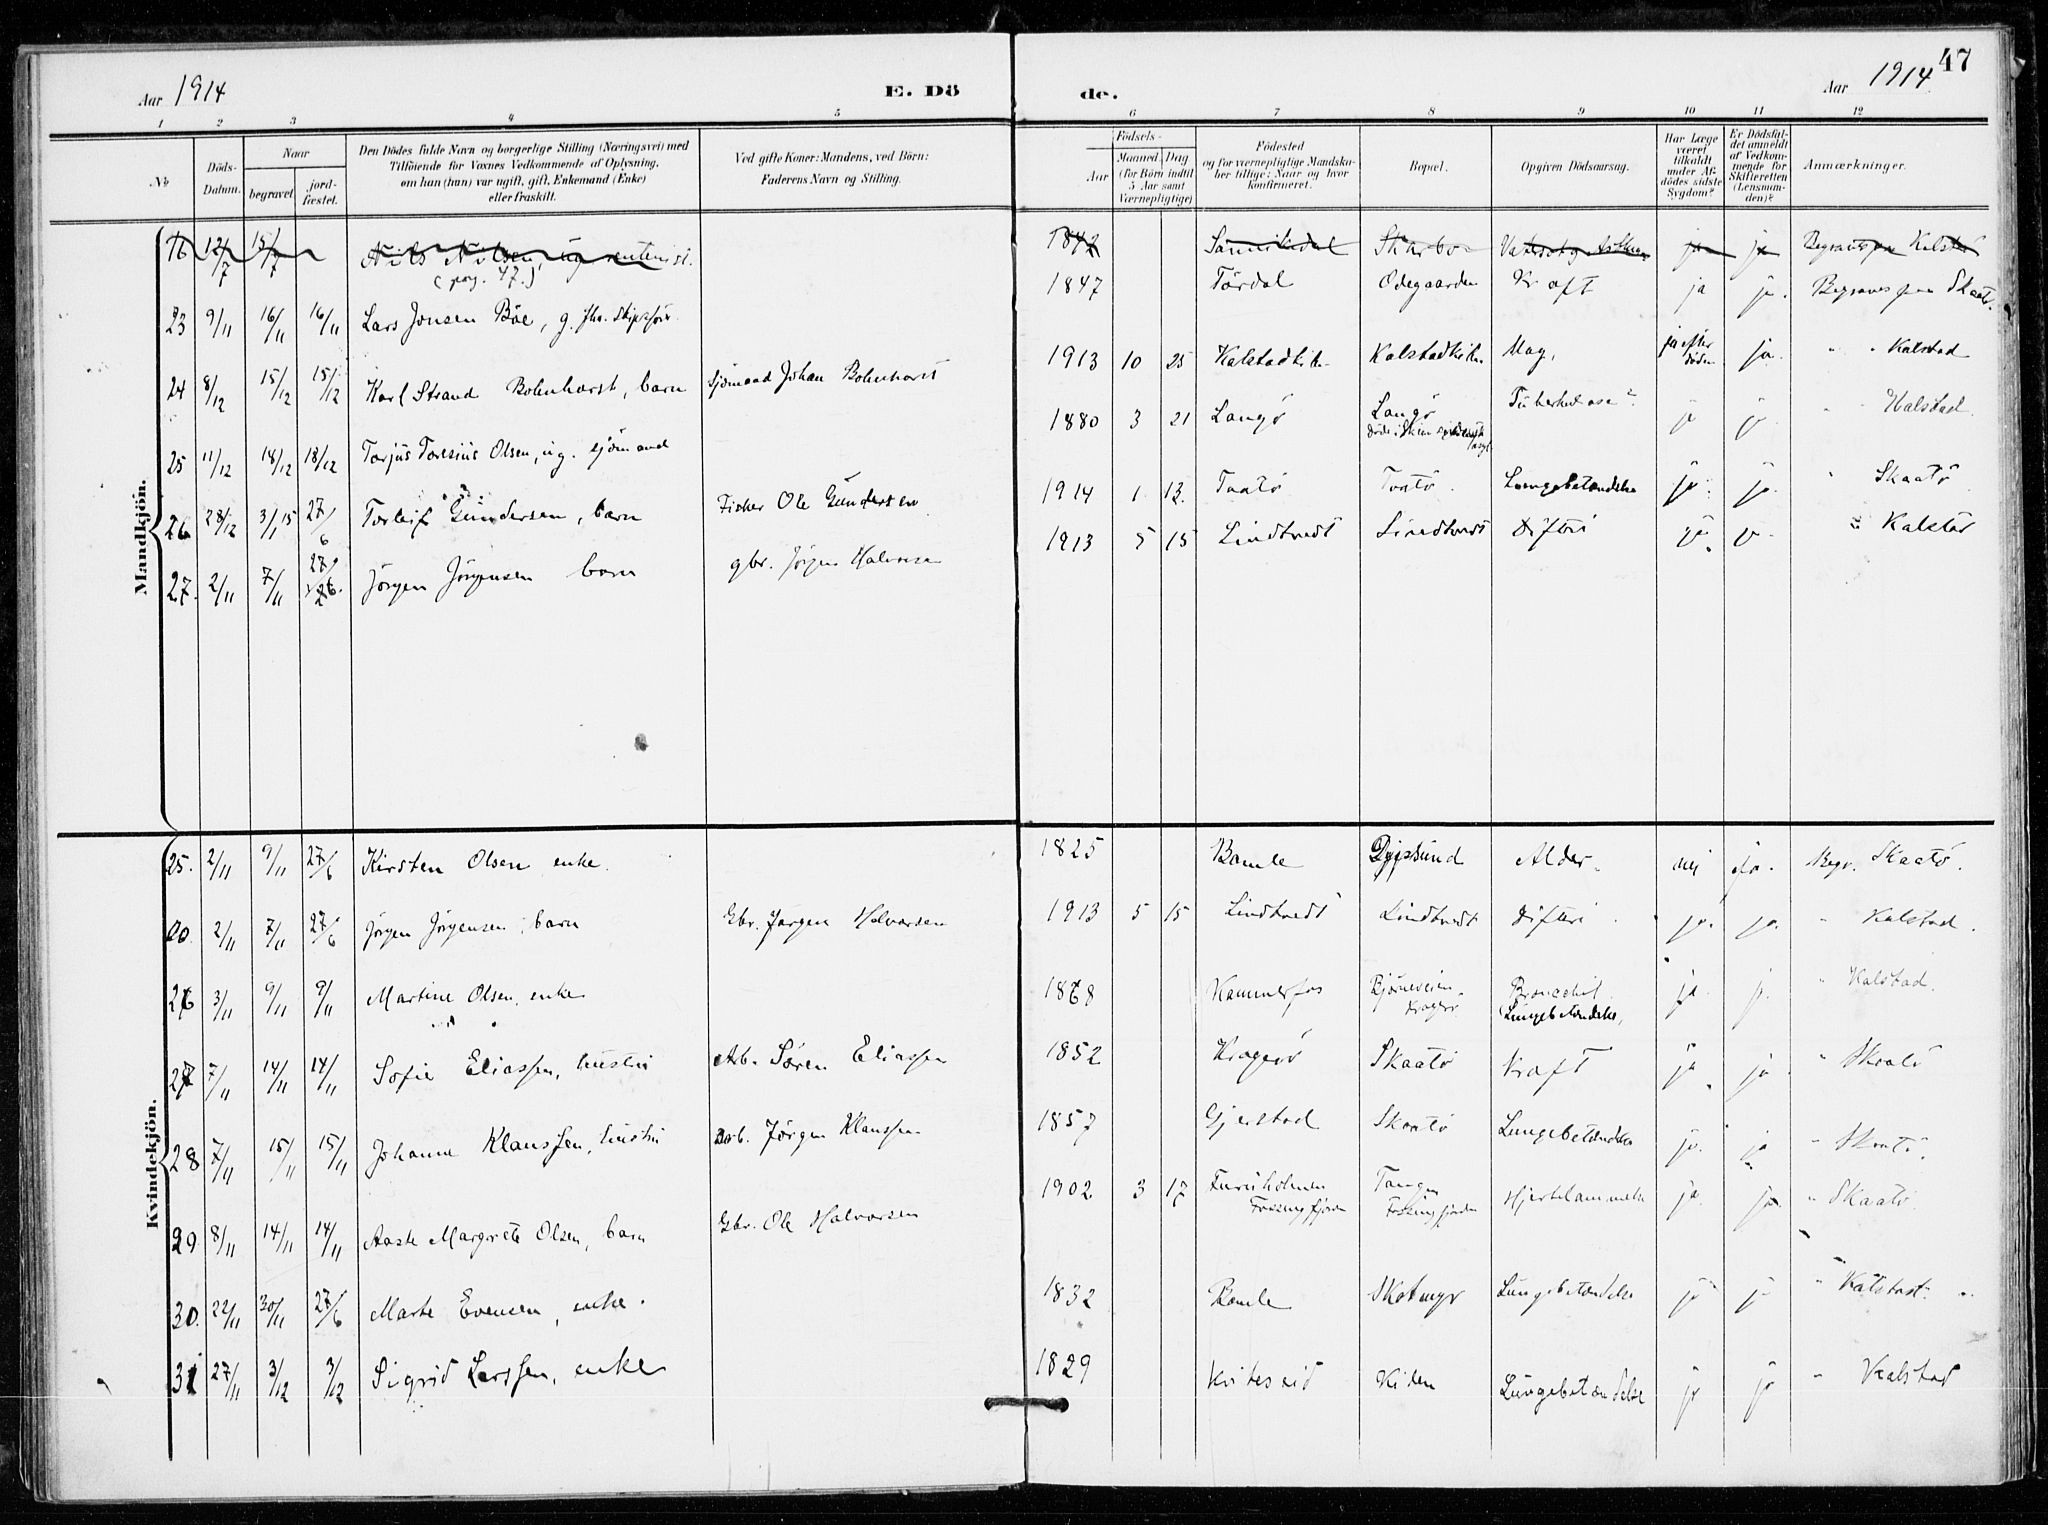 Aar 1914
E. Dö
de.
Aar 1914
47
1 2 3 4 5 6 7 8 9 10 11 12
№
Döds-Datum.
Naar
begravet
jord-fæstet.
Den Dödes fulde Navn og borgerlige Stilling (Næringsvei) med
Tilföiende for Voxnes Vedkommende af Oplysning,
om han (hun) var ugift, gift, Enkemand (Enke)
eller fraskilt.
Ved gifte Koner: Mandens, ved Börn:
Faderens Navn og Stilling.
Födsels-
Aar
Maaned Dag
(for Börn indtil
5 Aar samt
Værnepligtige)
Födested
og for værnepligtige Mandska-
ber tillige: Naar og hvor
konfirmeret.
Bopæl.
Opgiven Dödsaarsag.
Har Læge
været
tilkaldt
under Af-
dödes sidste
Sygdom?
Er Dödsfal-
det anmeldt
af Vedkom-
mende for
Skifteretten
(Lensman-
den)?
Anmærkninger.
Mandkjön.
16 12/7 15/7 Nils Nilsen, ug rentenist. 1847 Sannikedal ja ja Begraves paa Kalstad
(pag. 47.)
23 9/11 16/11 16/11 Lars Jonsen Böe, g. fhv. Skipsför 1847 Tördal Ödegaarden Kræft ja ja. Begraves paa Skaatö.
24 8/12 15/12 15/12 Karl Strand Bohnhorst, barn Sjömand Johan Bohnhorst 1913 10 25 Kalstadkilen Kalstadkilen Mag, ja efter döden ja. " " Kalstad
25 11/12 18/12 18/12 Torjus Toresius Olsen, ug. sjömand 1880 3 21 Langö Langö Tuberkulose? ja ja " Kalstad.
26 28/12 3/1 15 27/6 Torleif Gundersen, barn Fisker Ole Gundersen 1914 1 13. Taatö Taatö. Lungebetændelse ja. ja. " Skaatö
27. 2/11 7/11 27/6 Jörgen Jörgensen barn gbr. Jörgen Halvorsen 1913 5 15 Lindtvedt Lindtvedt Difteri ja. ja. " Kalstad
Kvindekjön.
25. 2/11 9/11 27/6 Kirsten Olsen enke. 1825 Bamle Dypsund Alder. nei ja. Begr. Skaatö.
20. 2/11 7/11 27/6 Jörgen Jörgensen, barn Gbr. Jörgen Halvorsen 1913 5 15 Lindtvedt Lindtvedt Difteri. ja. ja. " Kalstad.
26 3/11 9/11 9/11 Martine Olsen, enke 1868 Kammerfos Bjørneveien Kragerö Bronchit Lungebetændelse, ja. j. " Kalstad.
27 7/11 14/11 14/11 Sofie Eliassen, hustru Arb. Sören Eliassen 1852 Kragerö Skaatö Kræft ja. ja " Skaatö
28 7/11 15/11 15/11 Johanne Klaussen, hustru Arb. Jörgen Klaussen 1857 Gjerstad Skaatö Lungebetændelse ja. ja " Skaatö.
29 8/11 14/11 14/11 Aaste Margrete Olsen, barn Gbr. Ole Halvorsen 1902 3 17 Furuholmen Fossingfjorden Tangen Fossingfjorden Hjertelammelse ja. ja. " Skaatö.
30. 22/11 30/11 27/6 Marte Evensen, enke. 1832 Bamle Skotmyr Lungebetændelse ja ja " Kalstad.
31 27/11 3/12 3/12 Sigrid Larssen, enke 1829 Kviteseid Kilen Lungebetændelse ja ja " Kalstad